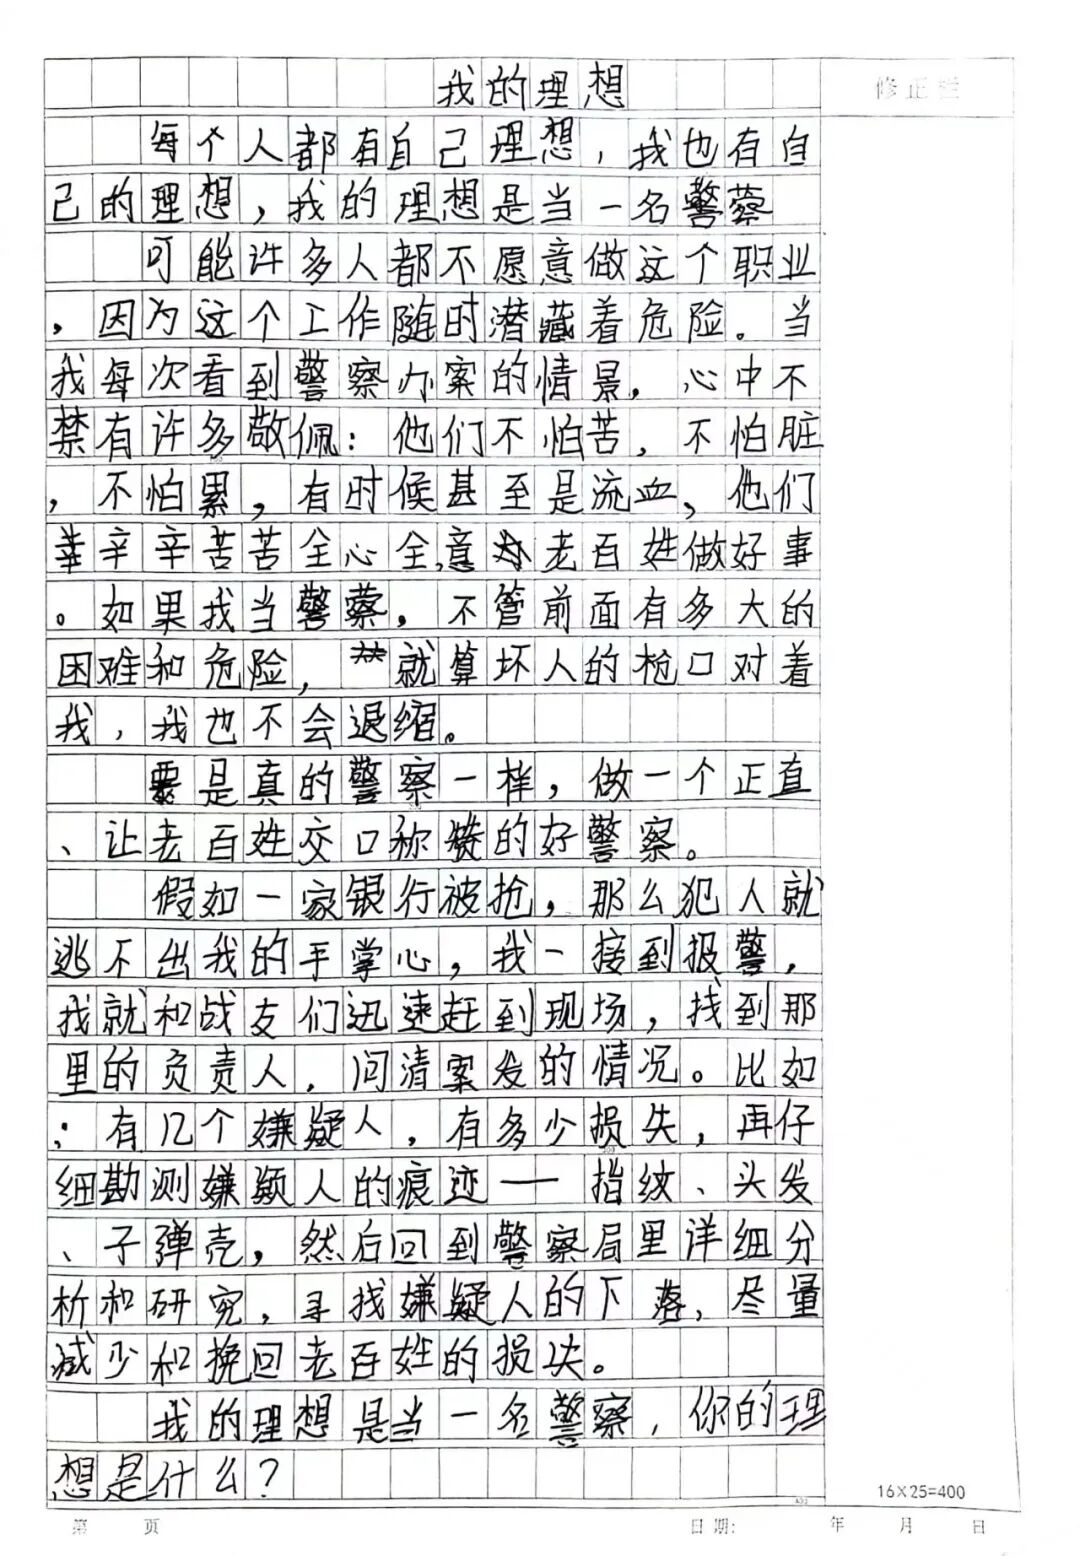 我的理想
修正栏
每个人都有自己理想，我也有自
己的理想，我的理想是当一名警察
可能许多人都不愿意做这个职业
，因为这个工作随时潜藏着危险。当
我每次看到警察办案的情景，心中不
禁有许多敬佩：他们不怕苦，不怕脏
，不怕累，有时候甚至是流血，他们
辛辛苦苦全心全意为老百姓做好事
。如果我当警察，不管前面有多大的
困难和危险，就算坏人的枪口对着
我，我也不会退缩。
要是真的警察一样，做一个正直
、让老百姓交口称赞的好警察。
假如一家银行被抢，那么犯人就
逃不出我的手掌心，我一接到报警，
我就和战友们迅速赶到现场，找到那
里的负责人，问清案发的情况。比如
：有几个嫌疑人，有多少损失，再仔
细勘测嫌疑人的痕迹——指纹、头发
、子弹壳，然后回到警察局里详细分
析和研究，寻找嫌疑人的下落，尽量
减少和挽回老百姓的损失。
我的理想是当一名警察，你的理
想是什么？
16×25=400
第 页 日期： 年 月 日